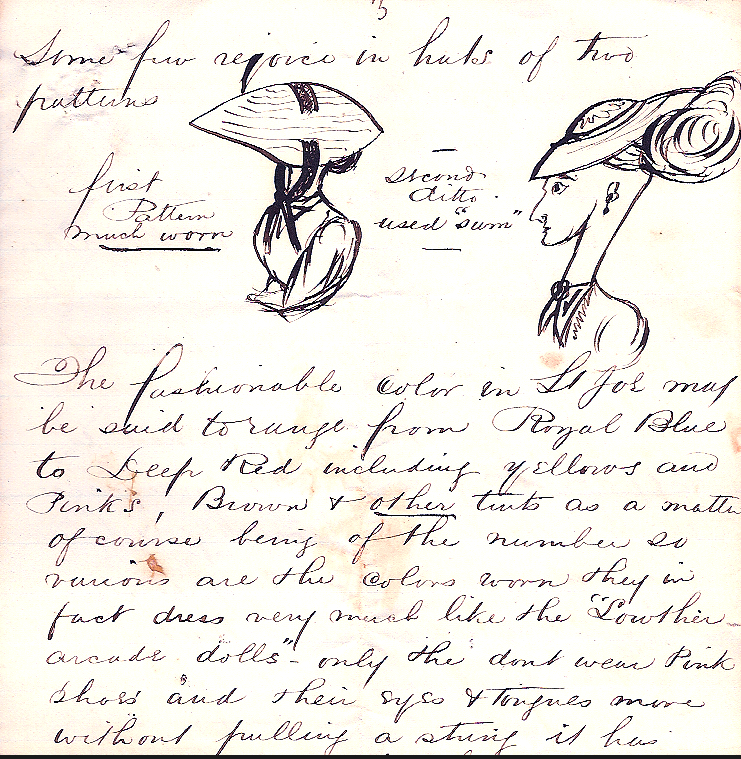 3
Some few rejoice in hats of two
patterns
first
Pattern
much worn
second
ditto
used "sum"
The fashionable color in St Joe may
be said to range from Royal Blue
to Deep Red including yellows and
Pinks, Brown & other tints as a matter
of course being of the number so
various are the colors worn they in
fact dress very much like the "Lowther
arcade dolls" - only the dont wear Pink
shoes and their eyes & tongues move
without pulling a string it has